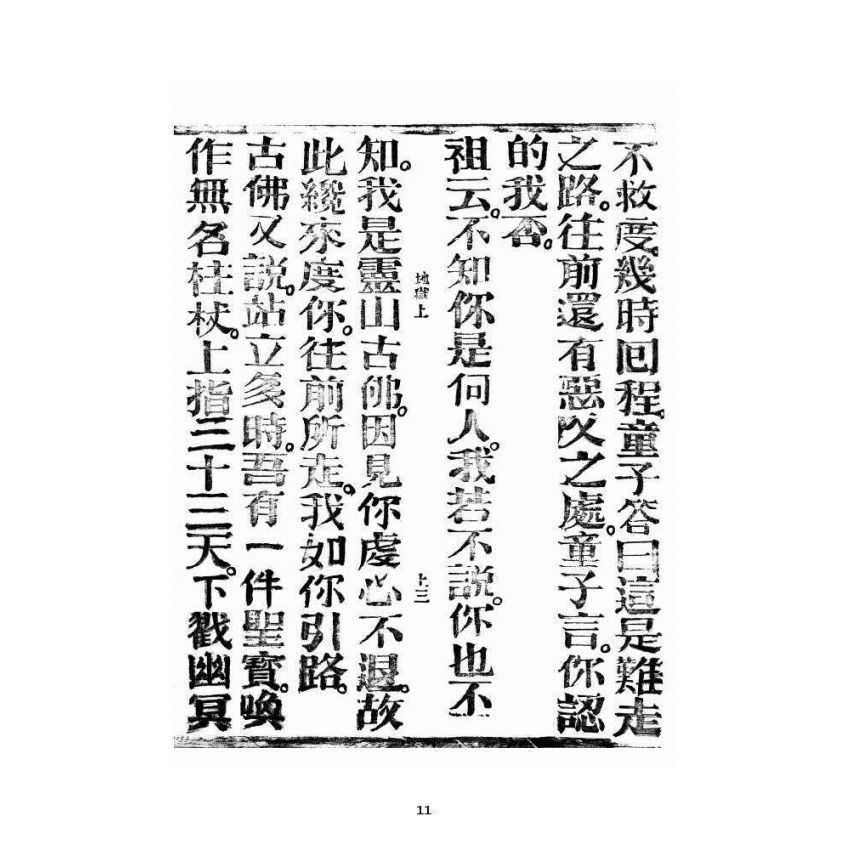 不救度。幾時回程。童子答曰這是難走
之路。往前還有惡㐅之處。童子言。你認
的我否。
祖云。不知你是何人。我若不説。你也不
地獄上
上三
知。我是靈山古佛。因見你虔心不退。故
此纔來度你。往前所走。我如你引路。
古佛又説。站立多時。吾有一件聖寳。喚
作無名柱杖。上指三十三天。下戳幽冥
11